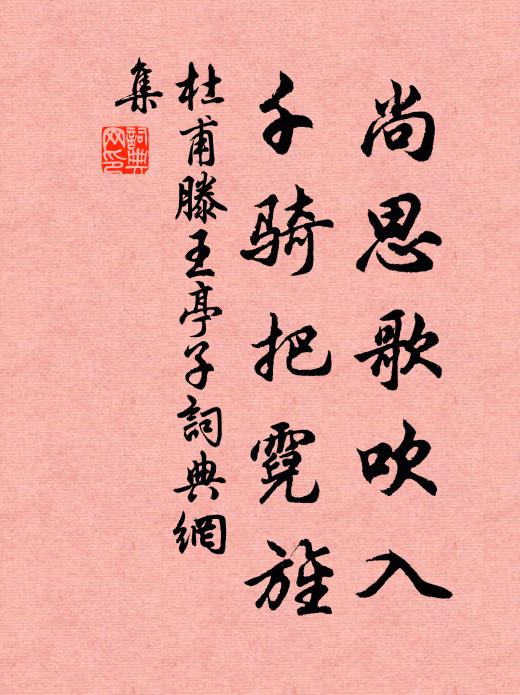 尚思歌吹入
千骑把霓旌
杜甫滕王亭子詞典網
集
詞典網印